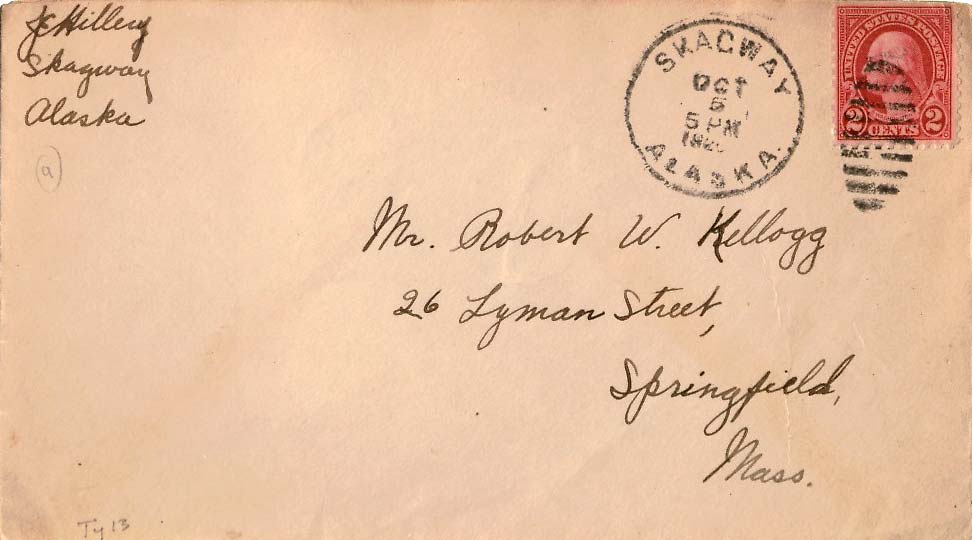 JCHillery
Skagway
Alaska
a
SKAGWAY
OCT
5
5 PM
ALASKA.
UNITED STATES POSTAGE
2 CENTS 2
Mr. Robert W. Kellogg
26 Lyman Street,
Springfield,
Mass.
Ty 13